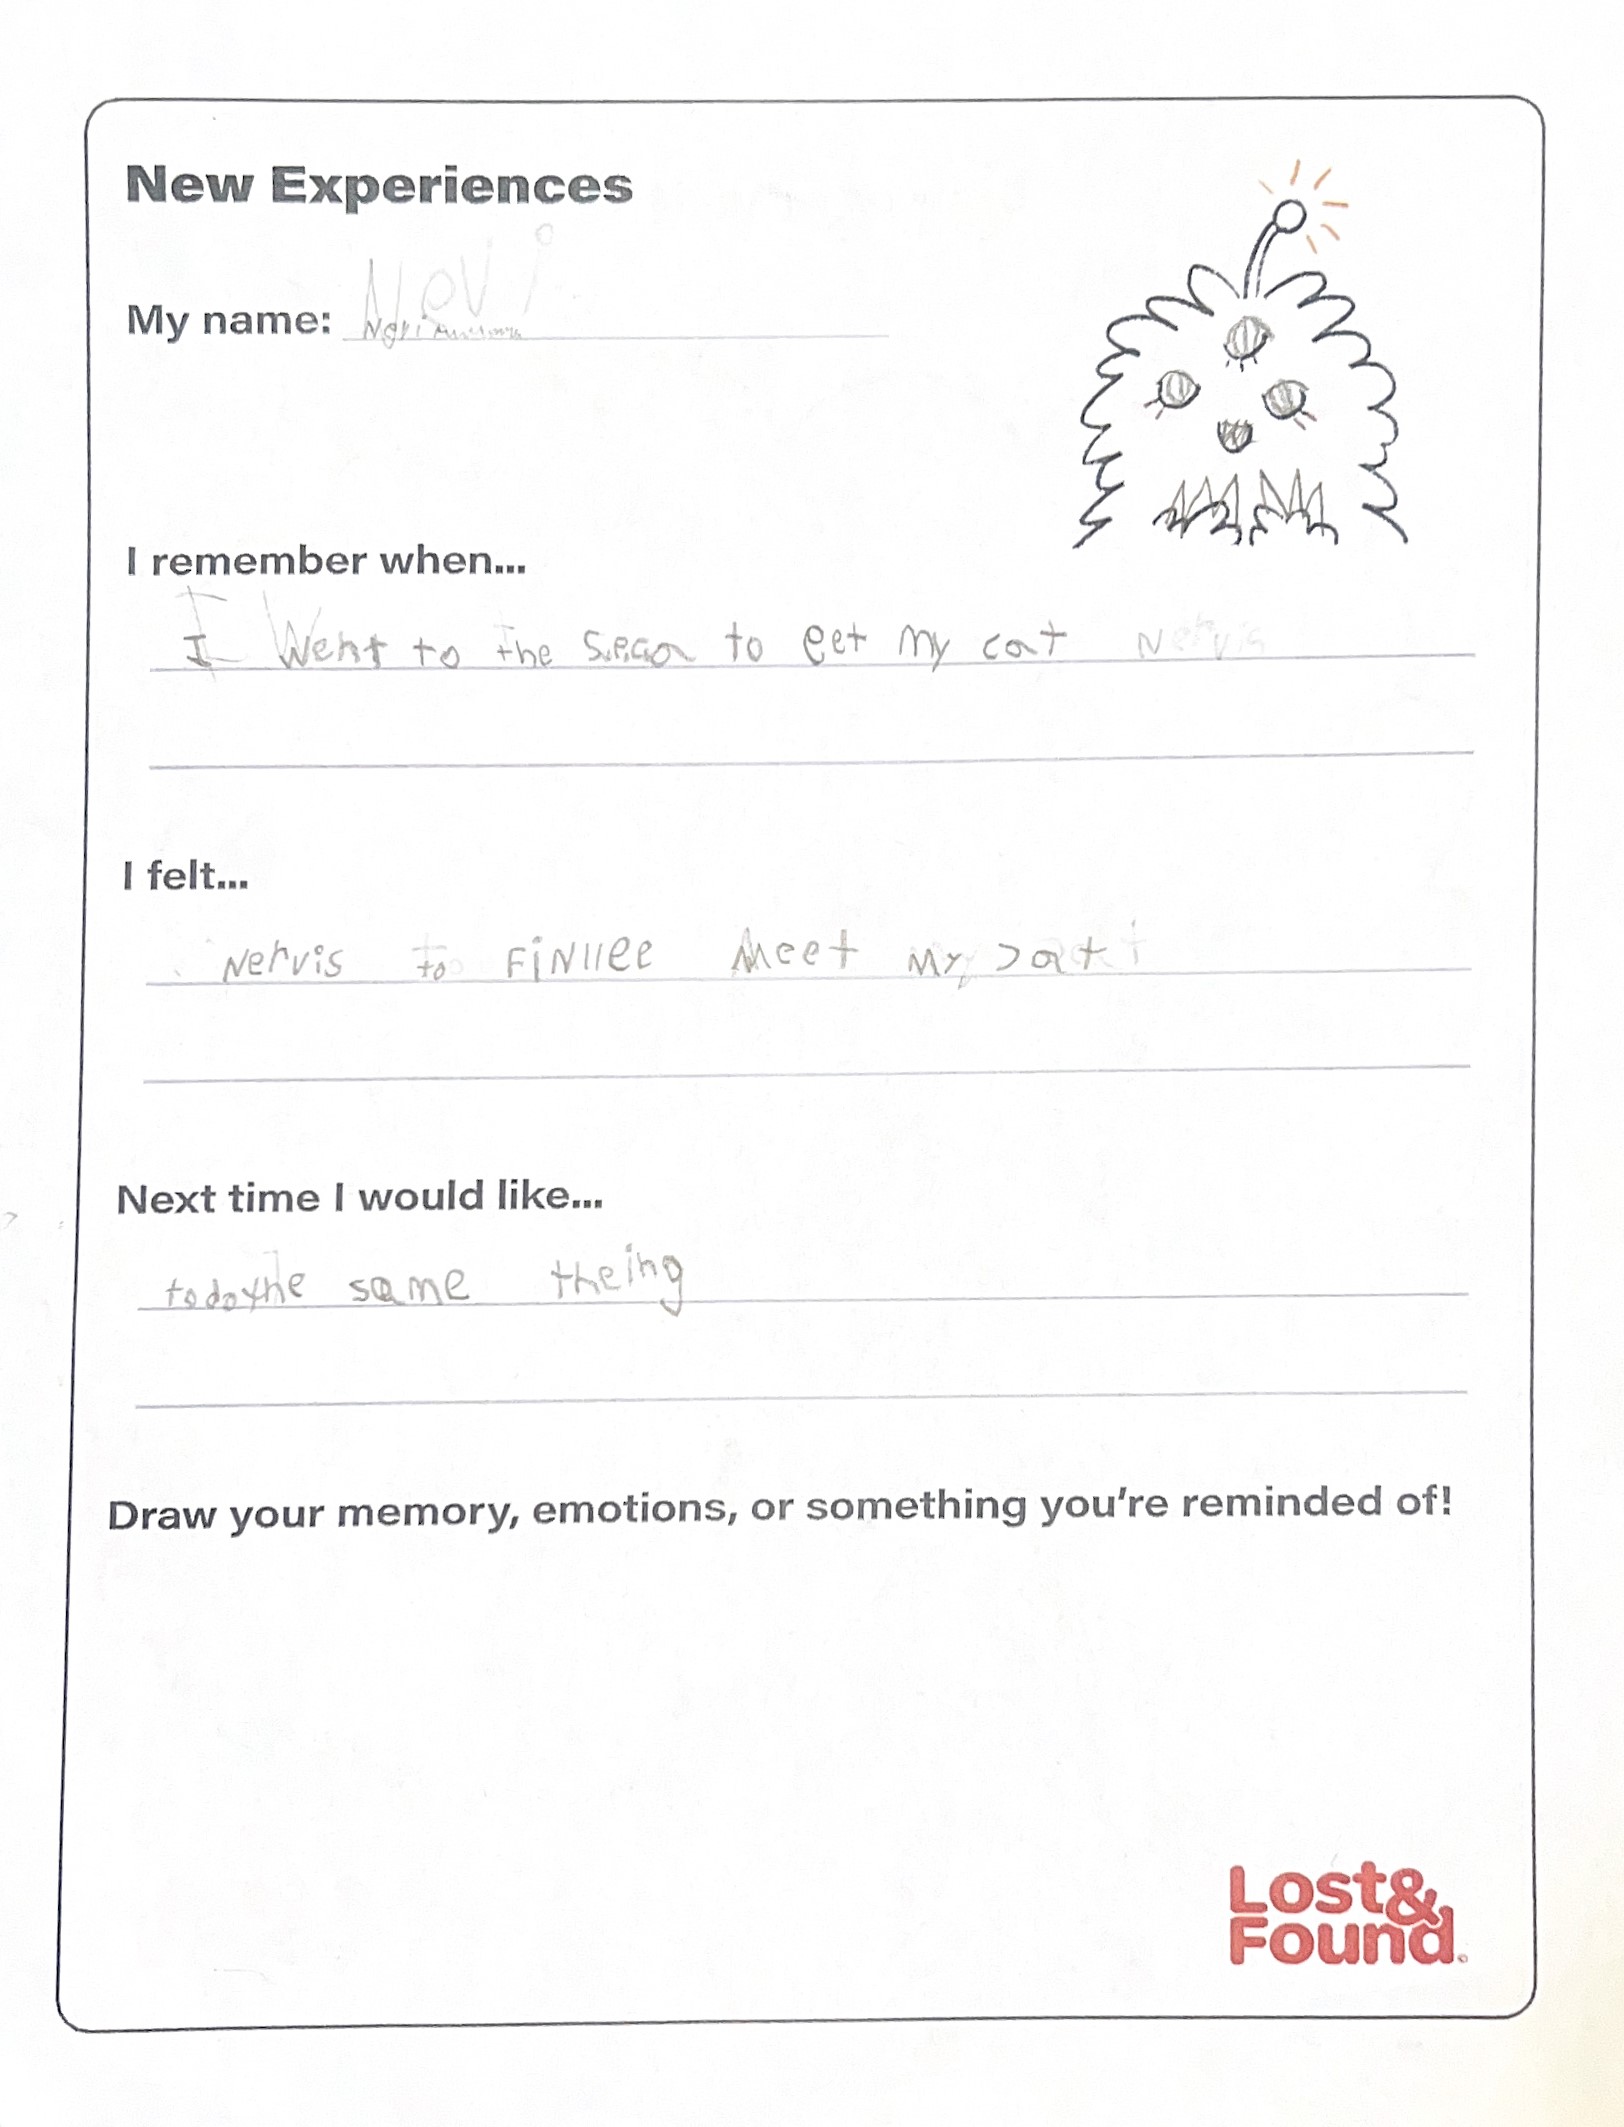 New Experiences
My name: Nevi
I remember when...
I Went to the to get my cat Nervis
I felt...
Nervis to FiNllee Meet My cat
Next time I would like...
todothe same theing
Draw your memory, emotions, or something you're reminded of!
Lost&
Found